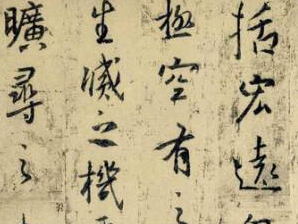 括宏遠
極空有之
生滅之機
曠尋之